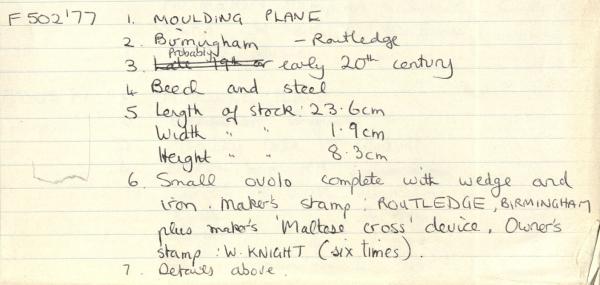 F502'77 1. MOULDING PLANE
2. Birmingham - Routledge
3. Late 19th or Probably early 20th century
4 Beech and steel
5 Length of stock: 23.6cm
Width " " 1.9cm
Height " " 8.3cm
6. Small ovolo complete with wedge and
iron. Maker's stamp: ROUTLEDGE, BIRMINGHAM
plus maker's 'Maltese cross' device, Owner's
stamp: W. KNIGHT (six times).
7. Details above.